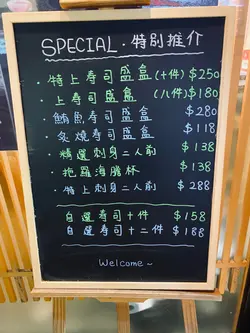 SPECIAL · 特別推介
· 特上寿司盛盒 (十件) $250
· 上寿司盛盒 (八件) $180
鮪魚寿司盛盒 $280
· 炙燒寿司盛盒 $118
· 精選刺身二人前 $138
· 拖羅海膽杯 $138
· 特上刺身二人前 $288
自選寿司十件 $158
自選寿司十二件 $188
Welcome~